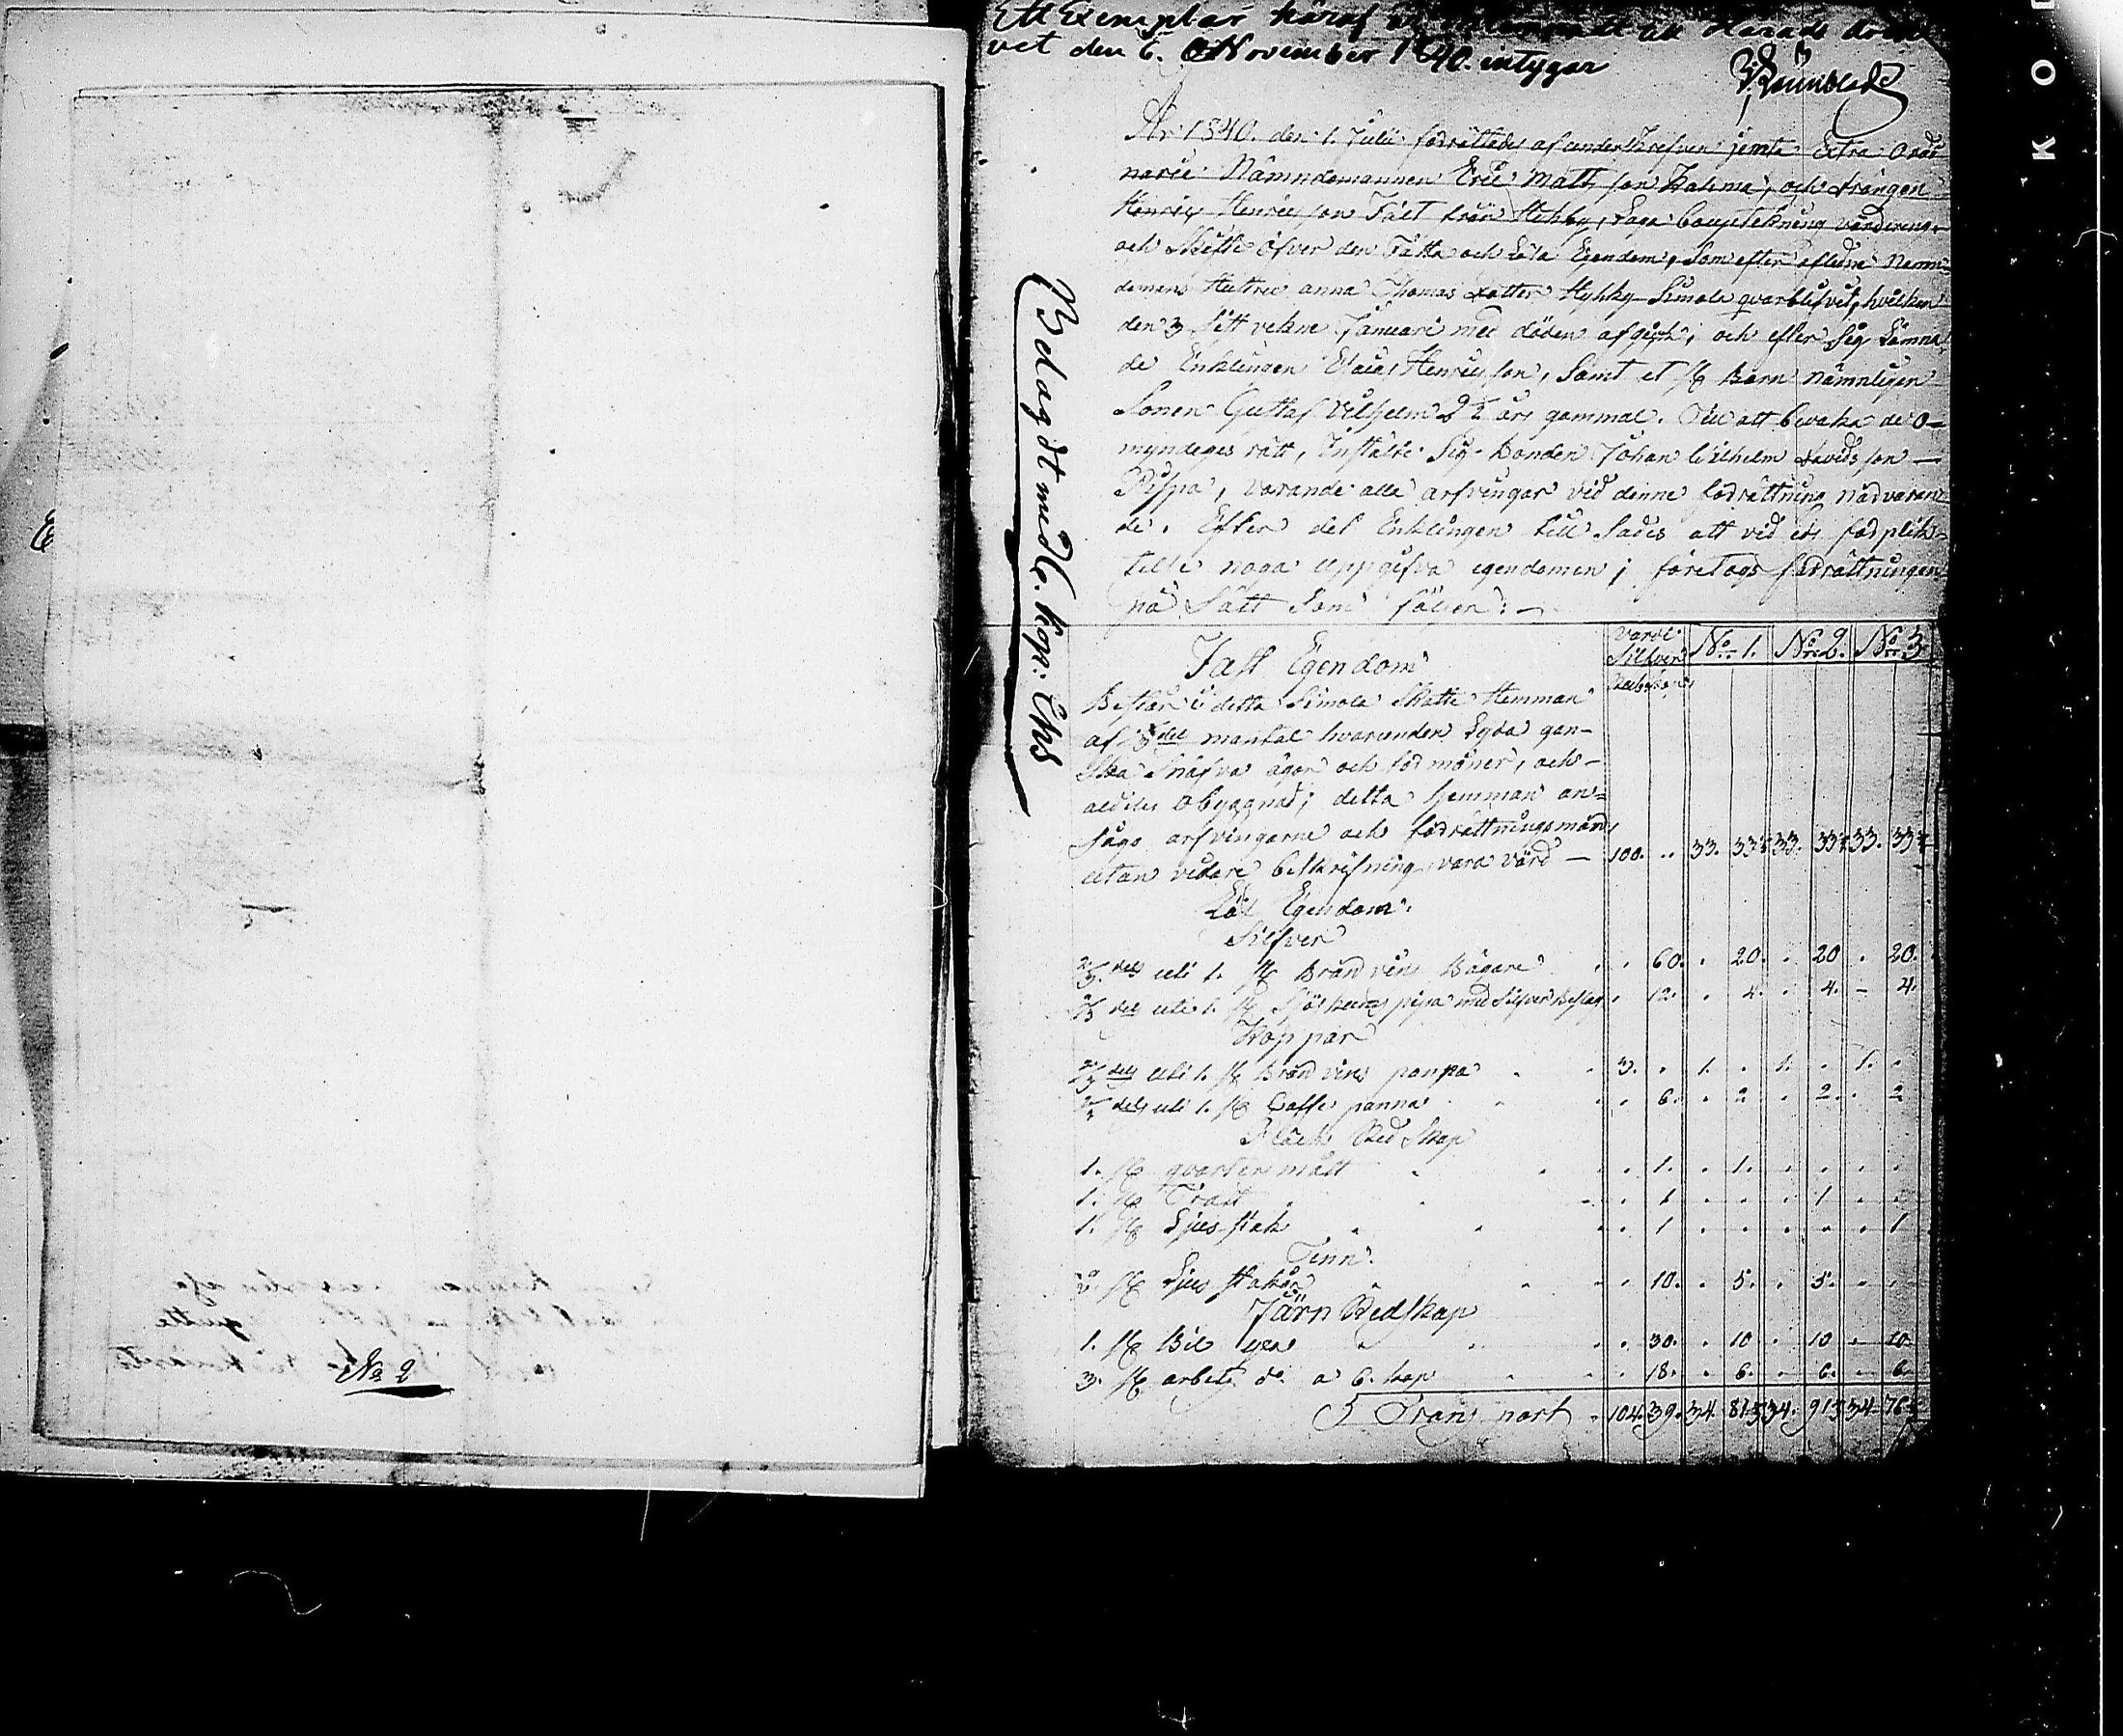 Ett Exemplar häraf är till Härads
vet den 6. November 1840. intygar
År 1840. den 1. Julii förrättades af underskrefven jemte Extra Ordi
narie Nämndemannen Eric Matts son och drängen
Henric Henrics son Fält från Hyhky, Laga bouptekning värdering
och Skifte öfver den Fatta och Lösa Egendom, Som efter aflidne Nämn
demans Hustru anna Thomas dotter Hyhky Simola qvarblifvit, hvilken
den 3 sistl vekne Januari med döden afgick; och efter Sig Lämna
de Enklingen Esaias Henrics son, Samt et st Barn nämnligen
Sonen Gustaf Vilhelm 2½ års gammal. Till att bevaka de O-
myndiges rätt, Instälte Sig Bonden Johan Wilhelm Davids son —
Pispa, varande alla arfvingar vid denne förrättning närvaran
de. Efter det Enklingen till Sades att vid eds förplik-
telse noga uppgifva egendomen; företogs förrättningen
på Sätt Som följer: —
Beslagdt med 6. kop: Chs
Fast Egendom
Värde Silfver Rubel No 1. No 2. No 3
Består i detta Simola Skatte Hemman
af del mantal hvarunder Lyda gan-
ska Snäfva ägor och förmåner, och
aldeles Obyggnad; detta hemman an-
sågo arfvingarne och förrättningsmän
utan vidare beskrifning vara värd — 100. .. 33. 33⅓ 33. 33⅓ 33. 33⅓
Lös Egendom.
Silfver
2/3 dels uti 1. st Brändvins Bägare . 60. . 20. . 20 . 20.
2/3 dels uti 1. st Sjöskums pipa med Silfver Beslag . 12. . 4. . 4. - 4.
Koppar
2/3 dels uti 1. st Brändvins panna 3. . 1. . 1. . 1. .
dels uti 1. st Caffe panna . 6. . 2 . 2. . 2
Bläck Red Skap
1. st qvarters mått . 1. . 1. . . . .
1. st Tratt . 1 . . . 1 . .
1. st Ljus stak . 1 . . . . . 1
Tenn
2. st Ljus stakar . 10. . 5. . 5. . .
Järn Redskap
1. st Bil yxa . 30. . 10 . 10 . 10
3. st arbets do a 6. kop . 18. . 6. . 6. . 6.
Transport 104. 39. 34. 81⅓ 34. 91⅓ 34. 76⅓
No 2